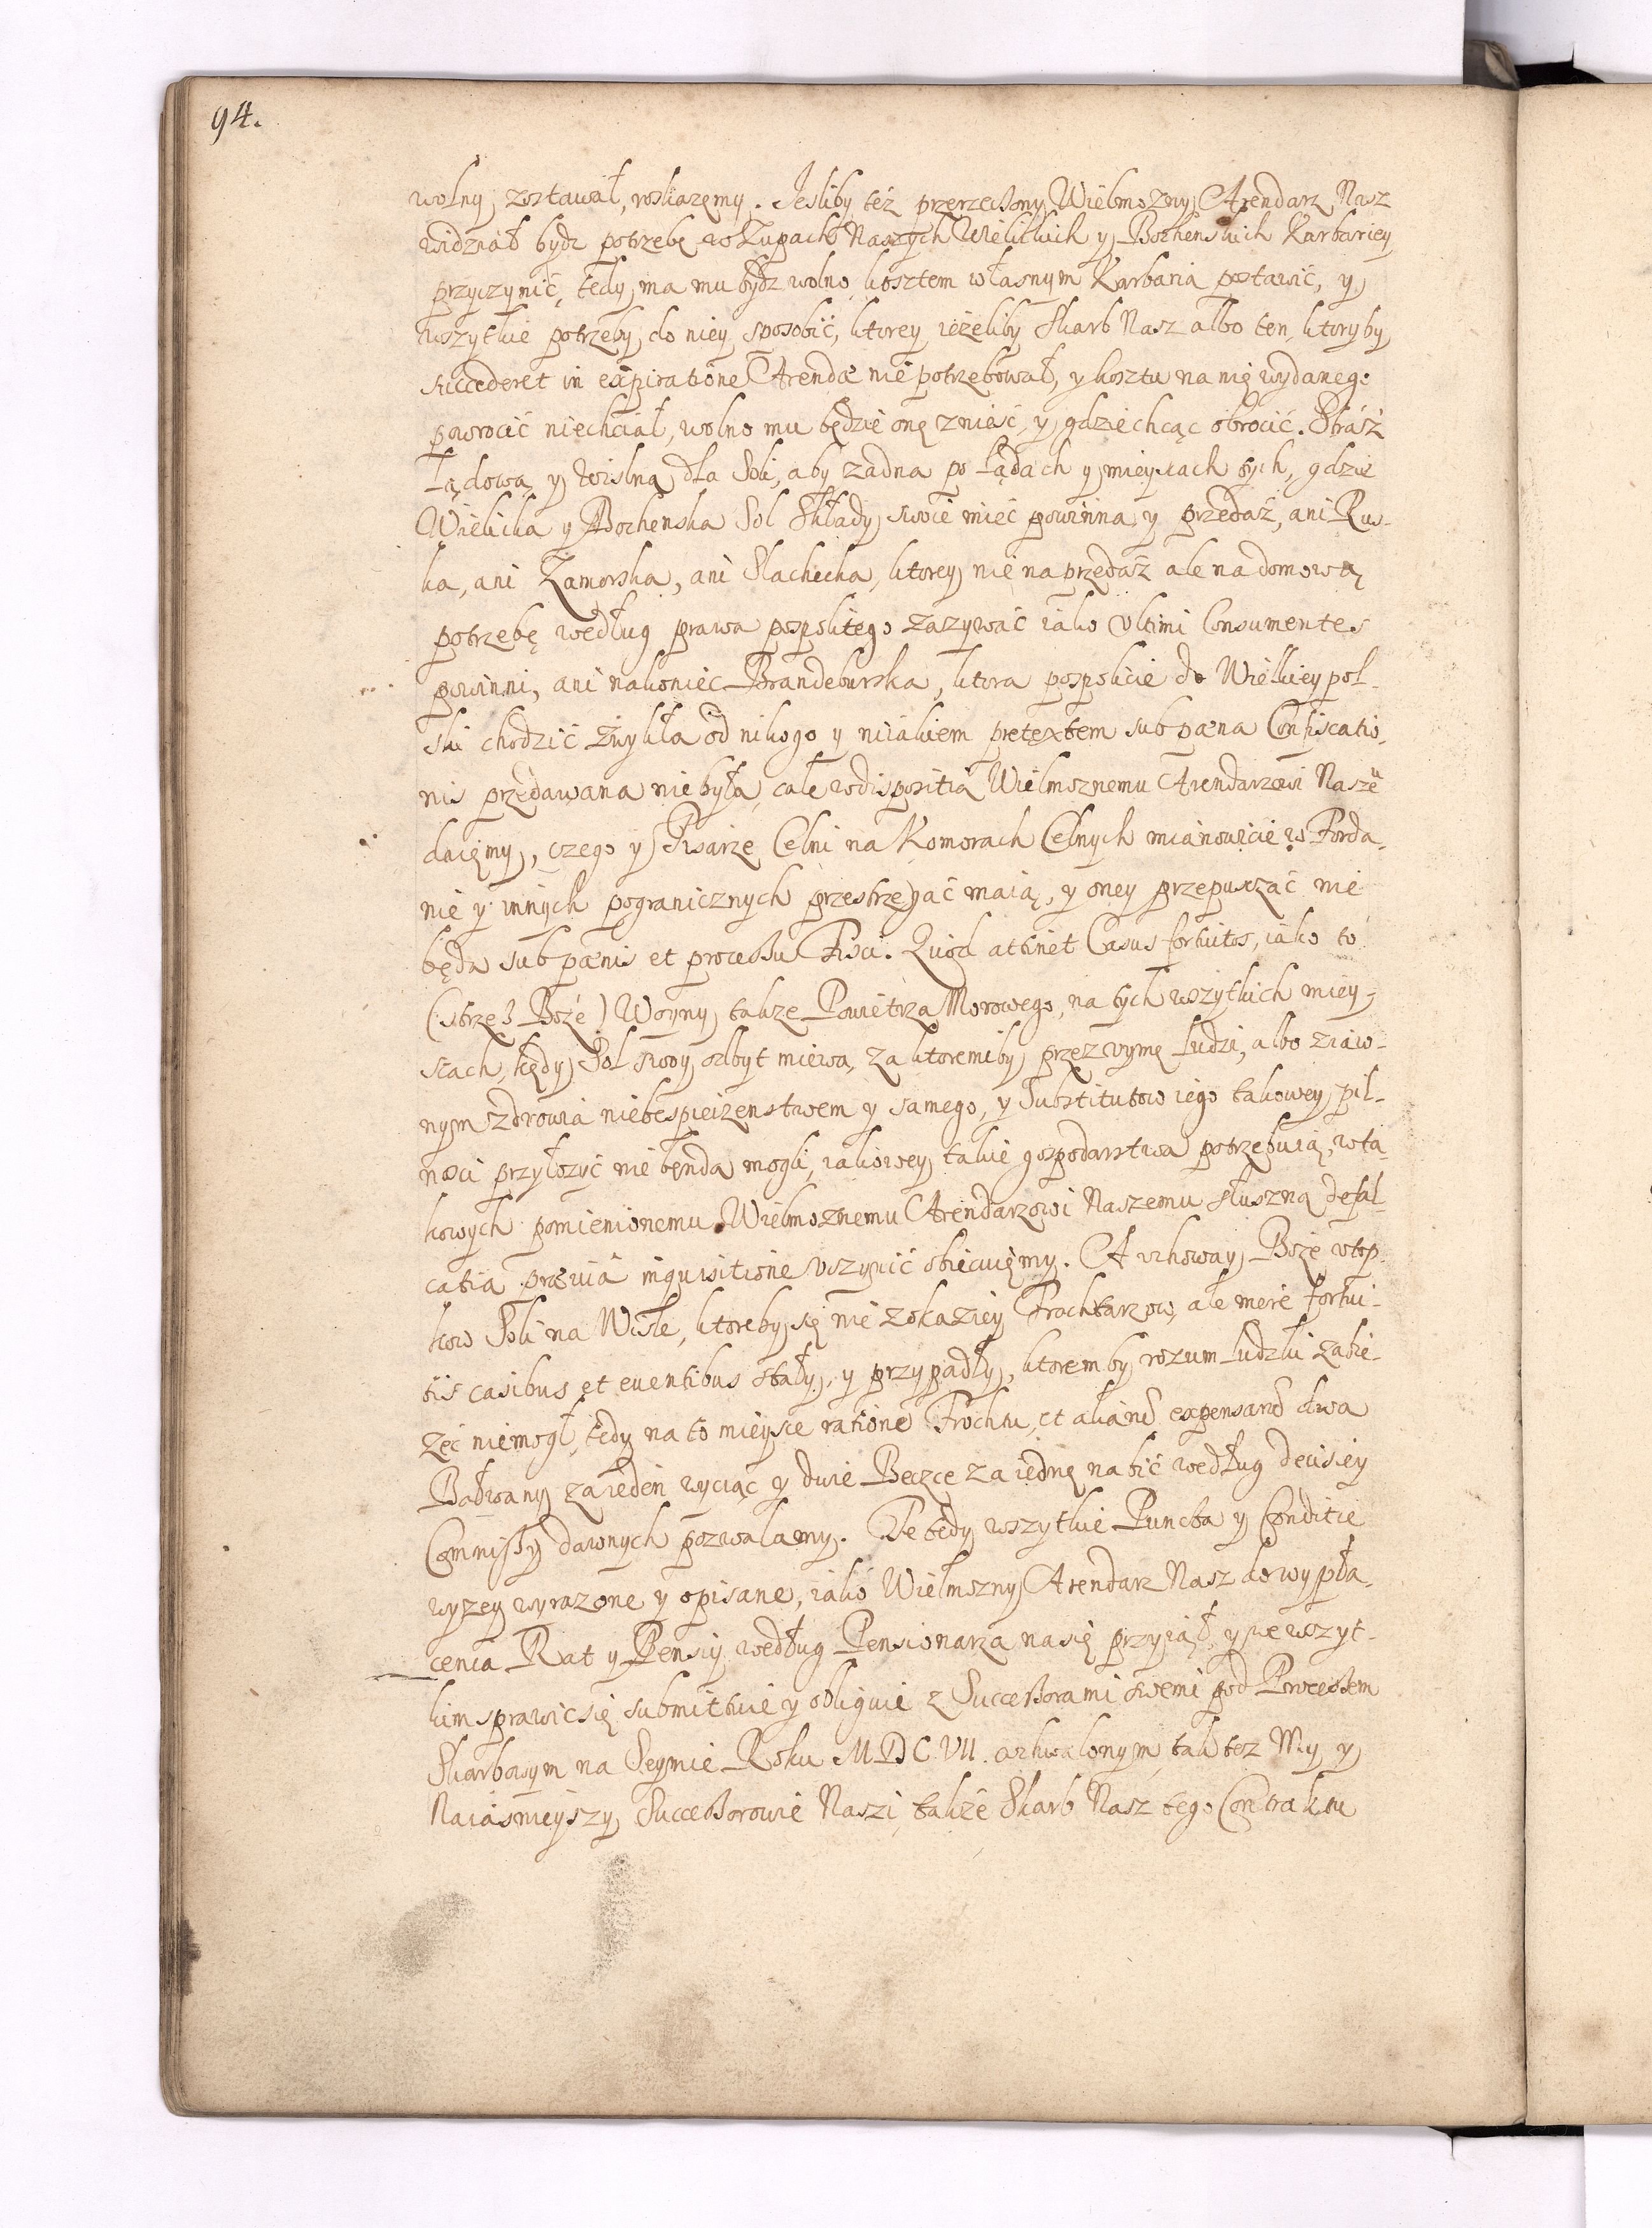 94.
wolny zostawał, roskazemy. Jesliby też przerzeczony Wielmozny Arendarz Nasz
widział bydz potrzebę w Zupach Naszych Wielickich y Bochenskich Karbariey
przyczynić, tedy ma mu bydz wolno kosztem własnym Karbaria postawić, y
wszytkie potrzeby do niey sposobić, ktorey ieżeliby Skarb Nasz albo ten, ktoryby
succederet in expiratione Arendæ nie potrzebował, y kosztu na nię wydanego
powrocić niechciał, wolno mu będzie onę znieść, y gdzie chcąc obrocić. Straż
Lądową y Wislną dla Soli, aby zadna po Lądach y mieyscach tych, gdzie
Wielicka y Bochenska Sol Składy swoie mieć powinna y przedaż, ani Rus-
ka, ani Zamorska, ani Slachecka, ktorey nie na przedaż ale na domową
potrzebę według prawa pospolitego zazywać iako Ultimi Consumentes
powinni, ani nakoniec Brandeburska, ktora pospolicie do Wielkiey pol-
ski chodzić zwykła od nikogo y niiakiem pretextem sub pæna Confiscatio-
nis przedawana nie była, cale w dispositią Wielmoznemu Arendarzowi Naszeu
daiemy, czego y Pisarze Celni na Komorach Celnych mianowicie w Forda-
nie y innych pogranicznych przestrzegać maią, y oney przepuszczać nie
będą sub pænis et processu Fisci. Quod attinet Casus fortuitos, iako to
(strzeż Boże) Woyny, takze Powietrza Morowego, na tych wszytkich miey-
scach, kędy Sol swoy odbyt miewa, za ktoremiby przez uymę ludzi, albo ziaw-
nym zdrowia niebespieczenstwem y samego, y Substitutow iego takowey pil-
nosci przyłozyć nie bęnda mogli, iakowey takie gospodarstwa potrzebuią, w ta-
kowych pomienionemu Wielmoznemu Arendarzowi Naszemu słuszną defal-
catią prævia inquisitione uczynić obiecuiemy. A uchoway Boże utop-
kow Soli na Wisle, ktoreby się nie z okaziey Frochtarzow, ale mere fortui-
tis casibus et euentibus stały, y przypadły, ktorem by rozum ludzki zabie-
zeć niemogł, tedy na to mieysce ratione Frochtu, et aliarum expensarum dwa
Bałwany za ieden wyciąc y dwie Beczce za iednę nabić według decisiey
Commissÿ dawnych pozwalamy. Te tedy wszytkie Puncta y Conditie
wyzey wyrazone y opisane, iako Wielmozny Arendarz Nasz do wypła-
cenia Rat y Pensiy według Pensionarza na się przyiął, y we wszyt-
kim sprawic się submittuie y obliguie z Successorami swemi pod Processem
Skarbowym na Seymie Roku MDC.VII. uchwalonym, tak tez My y
Naiasnieyszy Successorowie Naszi, takze Skarb Nasz tego Contraktu